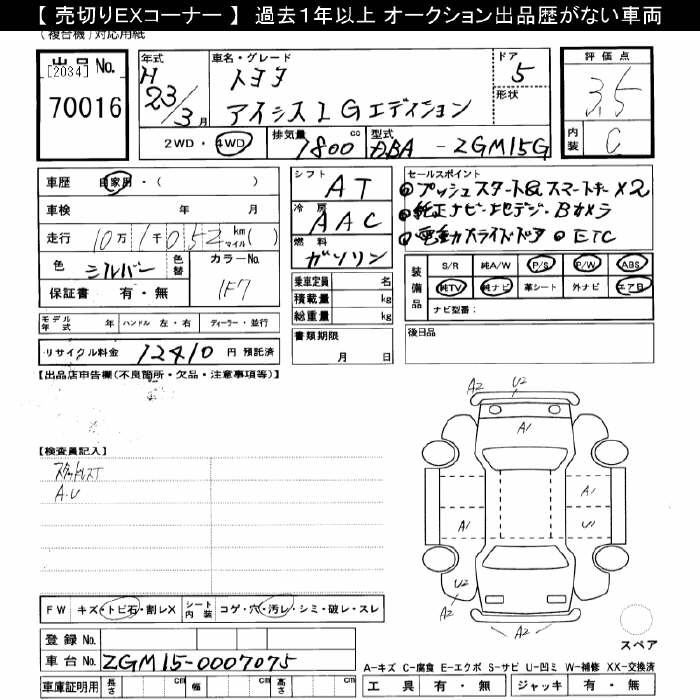 【 売切りEXコーナー 】 過去１年以上 オークション出品歴がない車両
(複合機)対応用紙
出品 No.
[2034]
70016
年式
H
23/3月
車名・グレード
トヨタ
アイシス L Gエディション
ドア
5
形状
評価点
3.5
内装
C
2WD・4WD
排気量
1800 cc
型式
DBA － ZGM15G
車歴 自家用・( )
車検 年 月
走行 10万 1千 052 km マイル( )
色 シルバー
色替
カラーNo.
1F7
保証書 有・無
シフト
AT
冷房
AAC
燃料
ガソリン
乗車定員 名
積載量 kg
総重量 kg
セールスポイント
プッシュスタート&スマートキー×2
純正ナビ・地デジ・Bカメラ
電動スライドドア ETC
装備品
S/R 純A/W P/S P/W ABS
純TV 純ナビ 革シート 外ナビ エアB
ナビ型番：
モデル年式 年 ハンドル 左・右 ディーラー・並行
リサイクル料金 12410 円 預託済
書類期限
月 日
後日品
【出品店申告欄(不良箇所・欠品・注意事項等)】
【検査員記入】
スタッドレスT
A.U
A2 U2
A1
A1
A1 U1
U2
A2
A2 A2
スペア
FW キズ・トビ石・割レX
シート内装 コゲ・穴・汚レ・シミ・破レ・スレ
登録 No.
車台 No. ZGM15-0007075
車庫証明用 長さ cm 幅 cm 高さ cm
A-キズ C-腐食 E-エクボ S-サビ U-凹ミ W-補修 XX-交換済
工具 有・無 ジャッキ 有・無